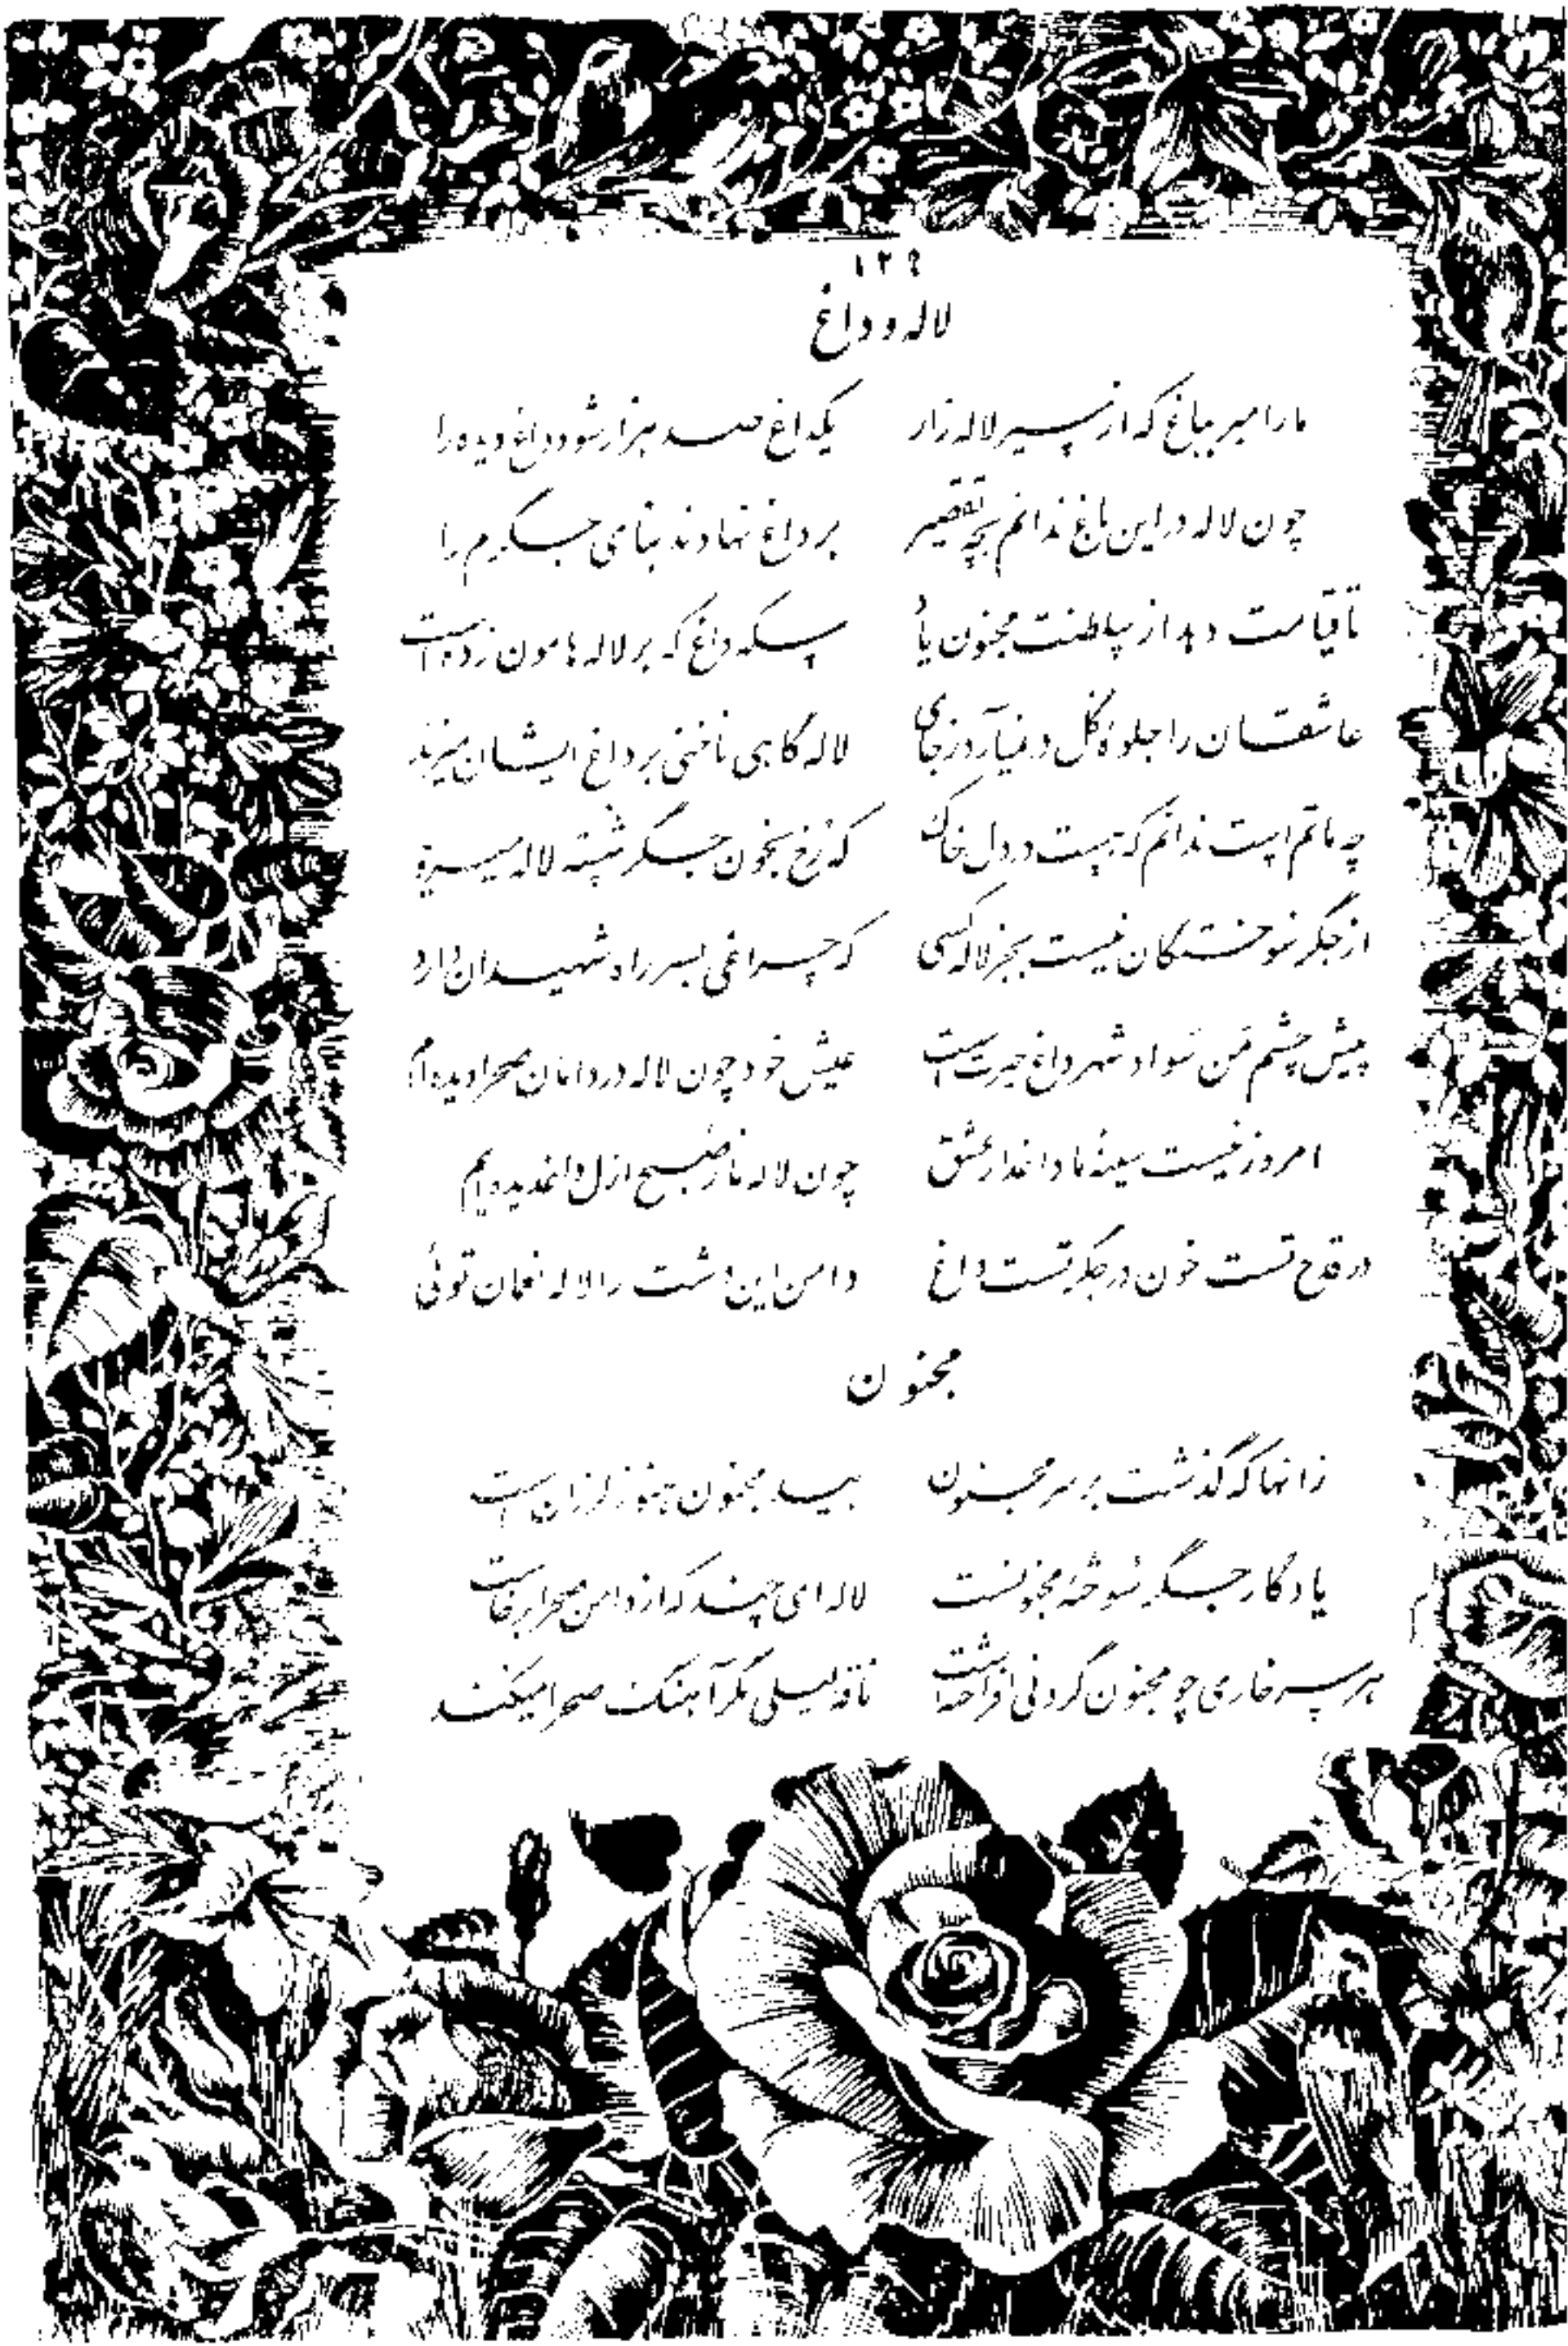 ۱۲۹
لاله و داغ
ما را مبر بباغ که از سیر لاله زار یکداغ صد هزار شود داغ دیده را
چون لاله در این باغ ندانم بچه تقصیر بر داغ نهادند بنای جگرم را
تا قیامت دهد از سلطنت مجنون یاد سکه داغ که بر لاله هامون زده است
عاشقان را جلوه گل در نیآرد ز جای لاله گاهی ناخنی بر داغ ایشان میزند
چه ماتم است ندانم که هست در دل خاک که رخ بخون جگر شسته لاله میروید
از جگر سوختگان نیست بجز لاله کسی که چراغی بسر راه شهیدان دارد
پیش چشم من سواد شهر داغ حیرت است عیش خود چون لاله در دامان صحرا دیده ام
امروز نیست سینه ما داغدار عشق چون لاله ما ز صبح ازل داغدیده ایم
در قدح تست خون در جگر تست داغ دامن این دشت را لاله نعمان توئی
مجنون
زانها که گذشت بر سر مجنون بید مجنون هنوز لرزان است
یادگار جگر سوخته مجنونست لاله ای چند که از دامن صحرا برخاست
هر سر خاری چو مجنون گردنی افراخته است ناقه لیلی مگر آهنگ صحرا میکند